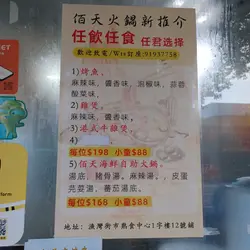 佰天火鍋新推介
任飲任食 任君选择
歡迎致電/Wts訂座:91937758
1)烤魚,
麻辣味, 醬香味, 泡椒味, 蒜蓉
酸菜味,
2)雞煲
麻辣味, 醬香味,
3)港式牛雜,
4)
每位$198 小童$88
5)佰天海鮮自助火鍋,
湯底, 豬骨湯, 麻辣湯, 皮蛋
芫荽湯, 番茄湯底,
每位$168 小童$88
地址: 漁灣街市熟食中心1字樓12號鋪